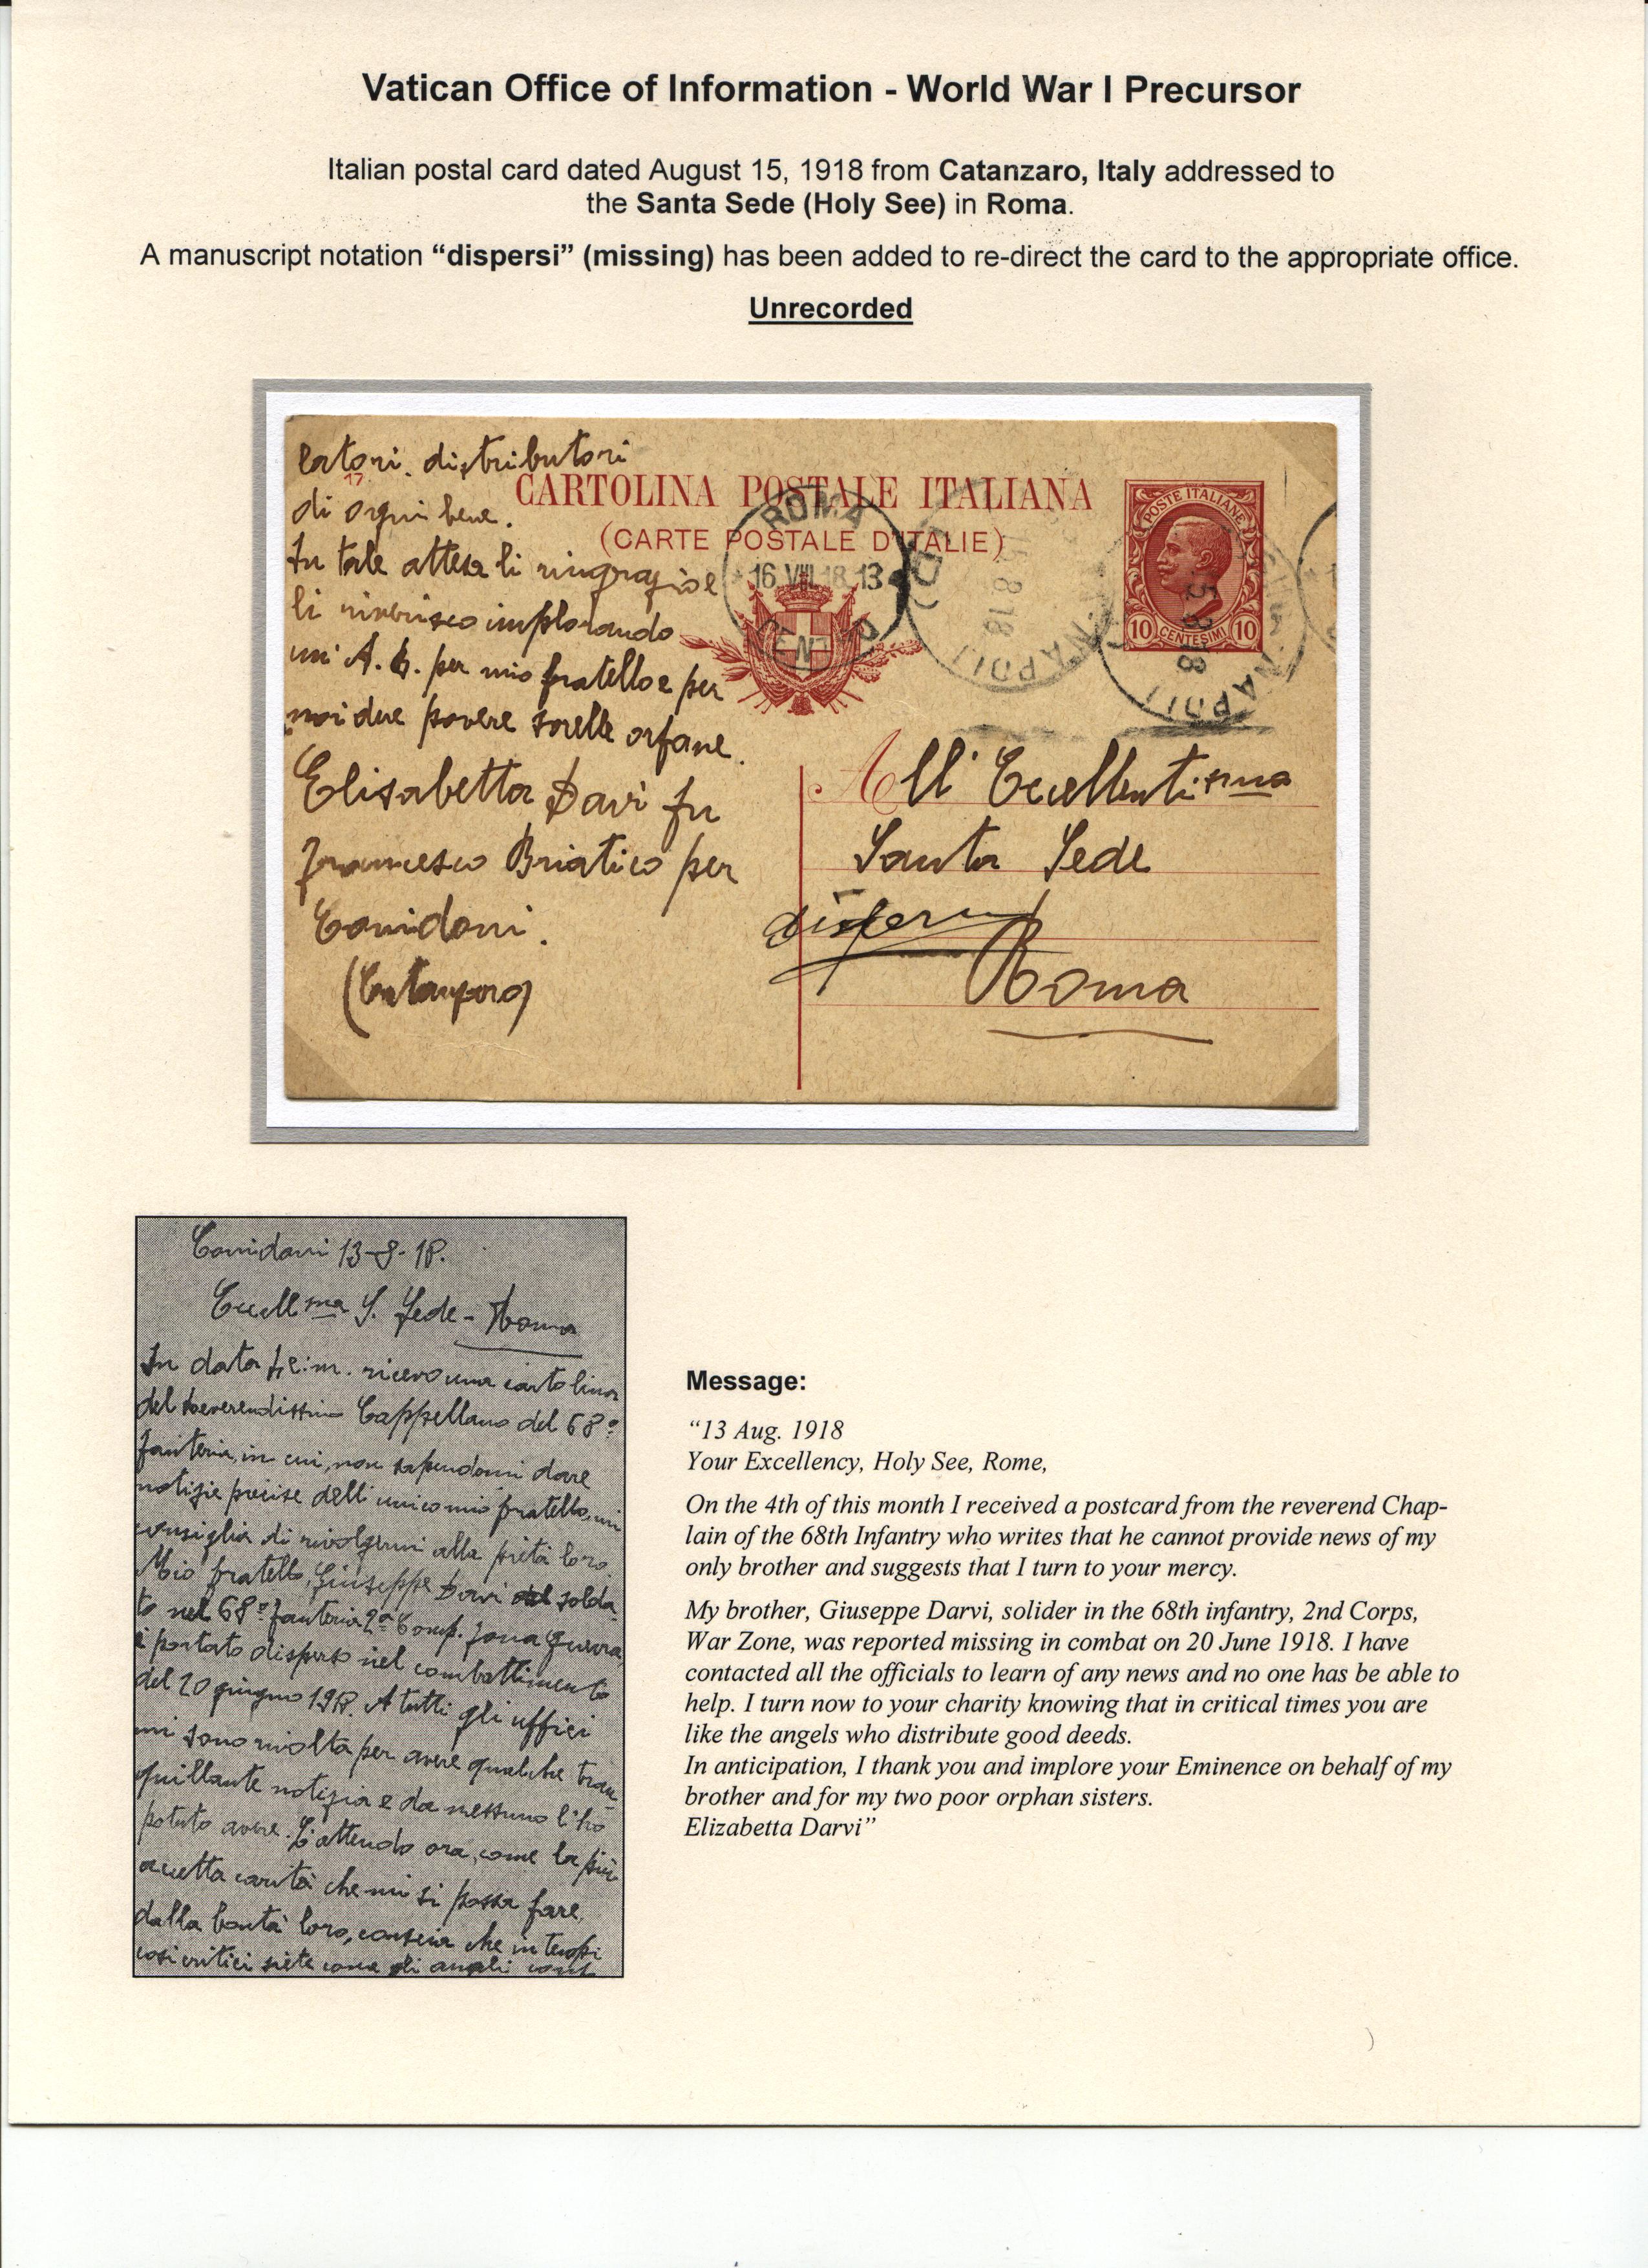 Vatican Office of Information - World War I Precursor
Italian postal card dated August 15, 1918 from Catanzaro, Italy addressed to
the Santa Sede (Holy See) in Roma.
A manuscript notation “dispersi” (missing) has been added to re-direct the card to the appropriate office.
Unrecorded
latori, distributori
17
di ogni bene.
In tale attesa li ringrazio e
li riverisco implorando
per mio fratello e per
noi due povere sorelle orfane.
Elisabetta Davì fu
Francesco Briatico per
Conidoni.
(Catanzaro)
CARTOLINA POSTALE ITALIANA
(CARTE POSTALE D'ITALIE)
ROMA
16 VIII 18 13
CENTRO
NAPOLI
8 18
POSTE ITALIANE
10 CENTESIMI 10
NAPOLI
All' Eccellentissima
Santa Sede
dispersi
Roma
Conidoni 13-8-18.
Eccell ma S. Sede - Roma
In data 4 c. m. ricevo una cartolina
del Reverendissimo Cappellano del 68º
fanteria, in cui, non sapendomi dare
notizie precise dell'unico mio fratello, mi
consiglia di rivolgermi alla pietà loro.
Mio fratello, Giuseppe Davì solda
to nel 68º fanteria 2ª Comp. zona guerra,
è portato disperso nel combattimento
del 20 giugno 1918. A tutti gli uffici
mi sono rivolta per avere qualche tran
quillante notizia e da nessuno l'ho
potuto avere. L'attendo ora, come la più
accetta carità che mi si possa fare,
dalla bontà loro, conscia che in tempi
così critici siete come gli angeli
Message:
“13 Aug. 1918
Your Excellency, Holy See, Rome,
On the 4th of this month I received a postcard from the reverend Chap-
lain of the 68th Infantry who writes that he cannot provide news of my
only brother and suggests that I turn to your mercy.
My brother, Giuseppe Darvi, solider in the 68th infantry, 2nd Corps,
War Zone, was reported missing in combat on 20 June 1918. I have
contacted all the officials to learn of any news and no one has be able to
help. I turn now to your charity knowing that in critical times you are
like the angels who distribute good deeds.
In anticipation, I thank you and implore your Eminence on behalf of my
brother and for my two poor orphan sisters.
Elizabetta Darvi”